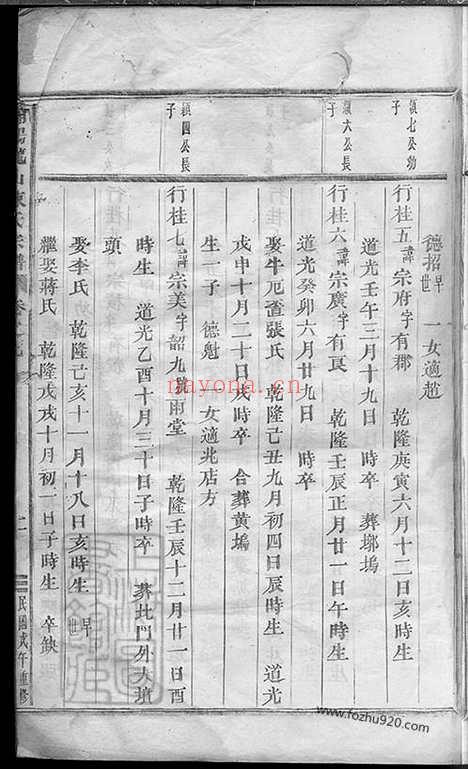 德招早世 一女適趙
鎮七公幼子
行桂五諱宗府字有郡 乾隆庚寅六月十二日亥時生
道光壬午三月十九日 時卒 葬塀塢
鎮六公長子
行桂六諱宗廣字有良 乾隆壬辰正月廿一日午時生
道光癸卯六月廿九日 時卒
娶牛厄畬張氏 乾隆己丑九月初四日辰時生 道光
戊申十月二十日戌時卒 合葬黃塢
生一子 德魁 一女適兆店方
鎮四公長子
行桂七諱宗美字韶九號雨堂 乾隆壬辰十二月廿一日酉
時生 道光乙酉十月三十日子時卒 葬北門外大墳
頭
娶李氏 乾隆己亥十一月十八日亥時生 早世
繼娶蔣氏 乾隆戊戌十月初一日子時生 卒缺
二
民國戊午重修
nayona.cn
www.fozhu920.com